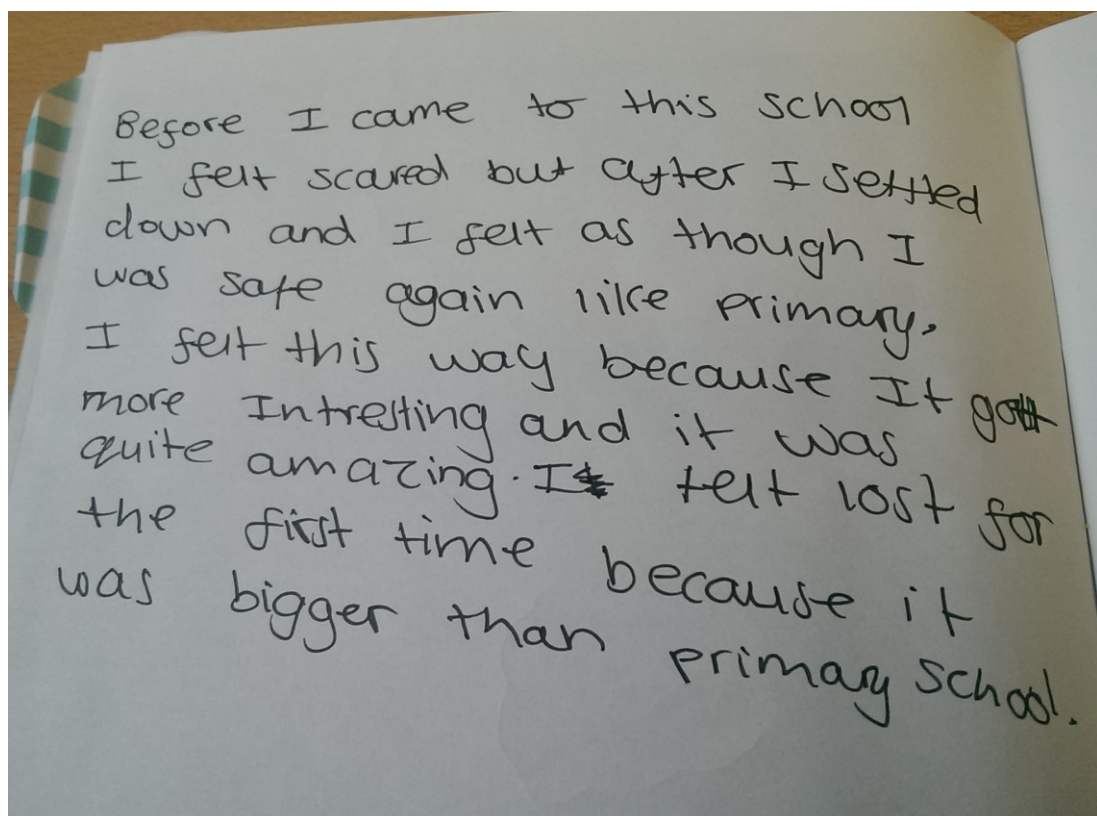 Before I came to this school
I felt scared but after I settled
down and I felt as though I
was safe again like primary.
I felt this way because It got
more Intresting and it was
quite amazing. I felt lost for
the first time because it
was bigger than primary school.